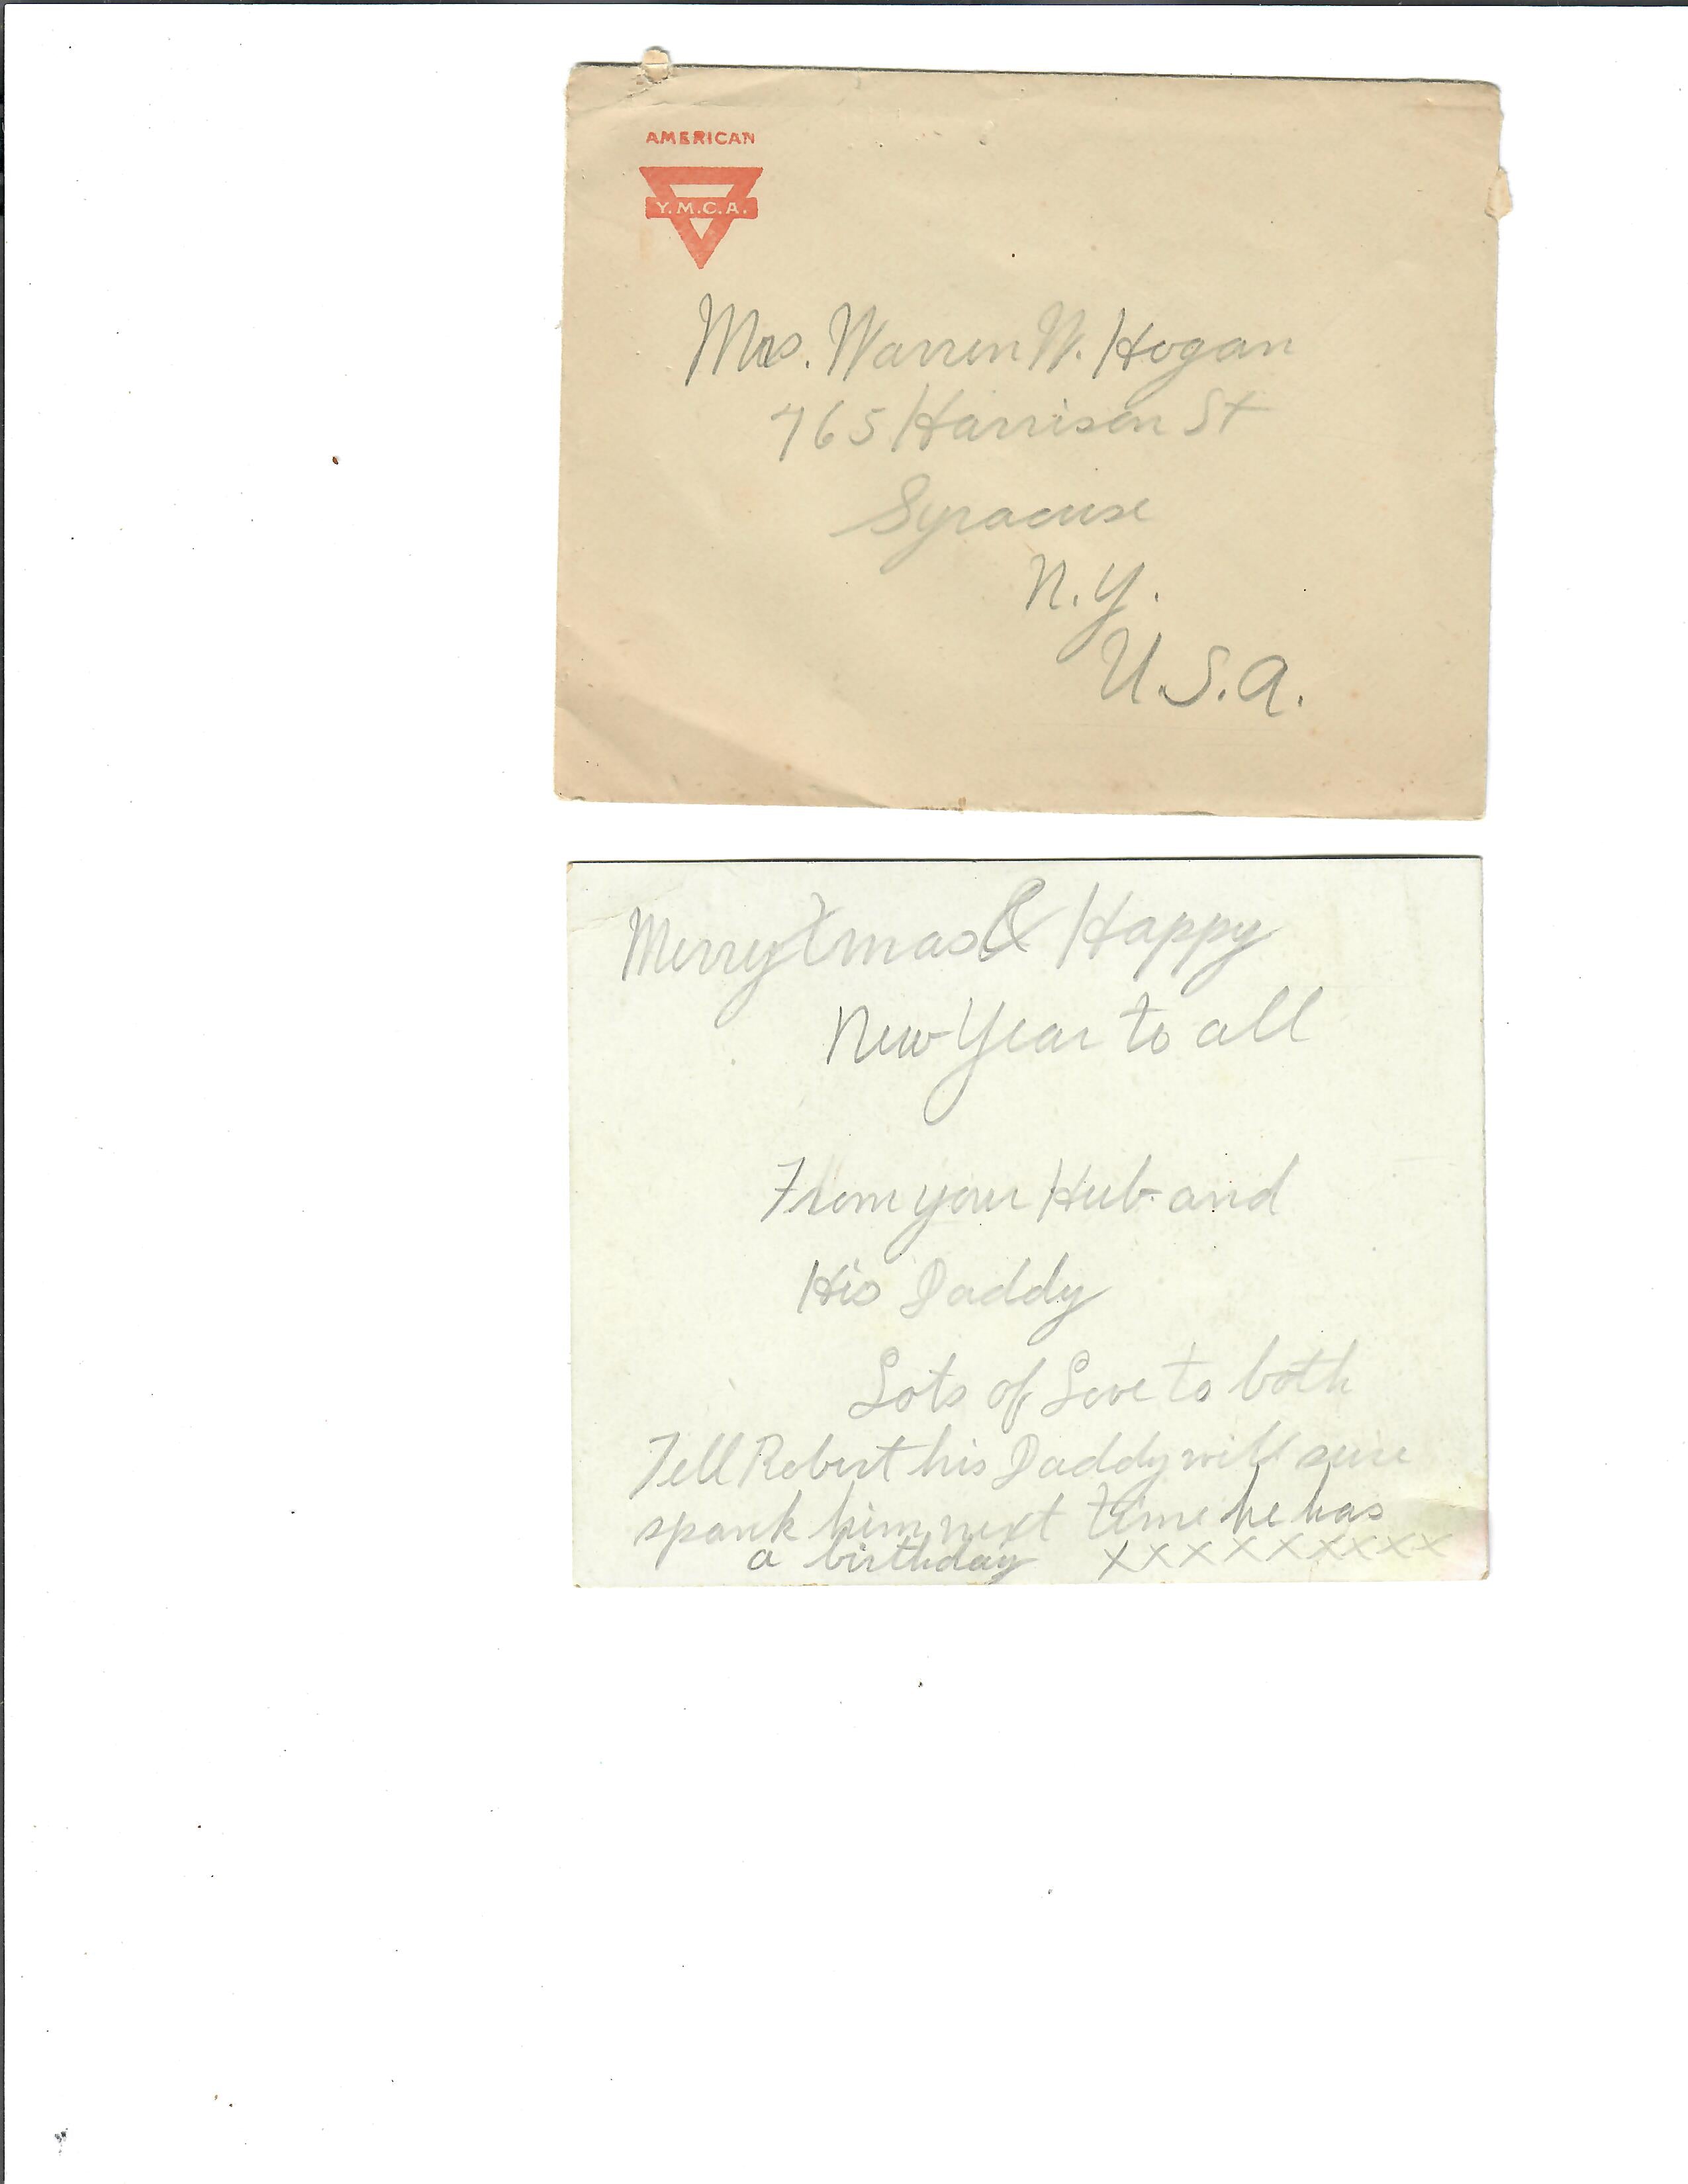 AMERICAN
Y.M.C.A.
Mrs. Warren W. Hogan
765 Harrison St
Syracuse
N.Y.
U.S.A.
Merry Xmas & Happy
New Year to all
From your Hub and
His Daddy
Lots of Love to both
Tell Robert his Daddy will sure
spank him next time he has
a birthday xxxxxxxxx